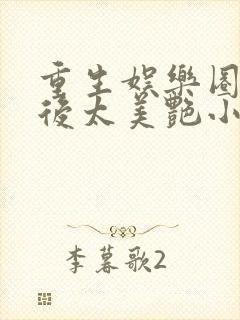 重生娛樂圈
後太美艷小
李暮歌2